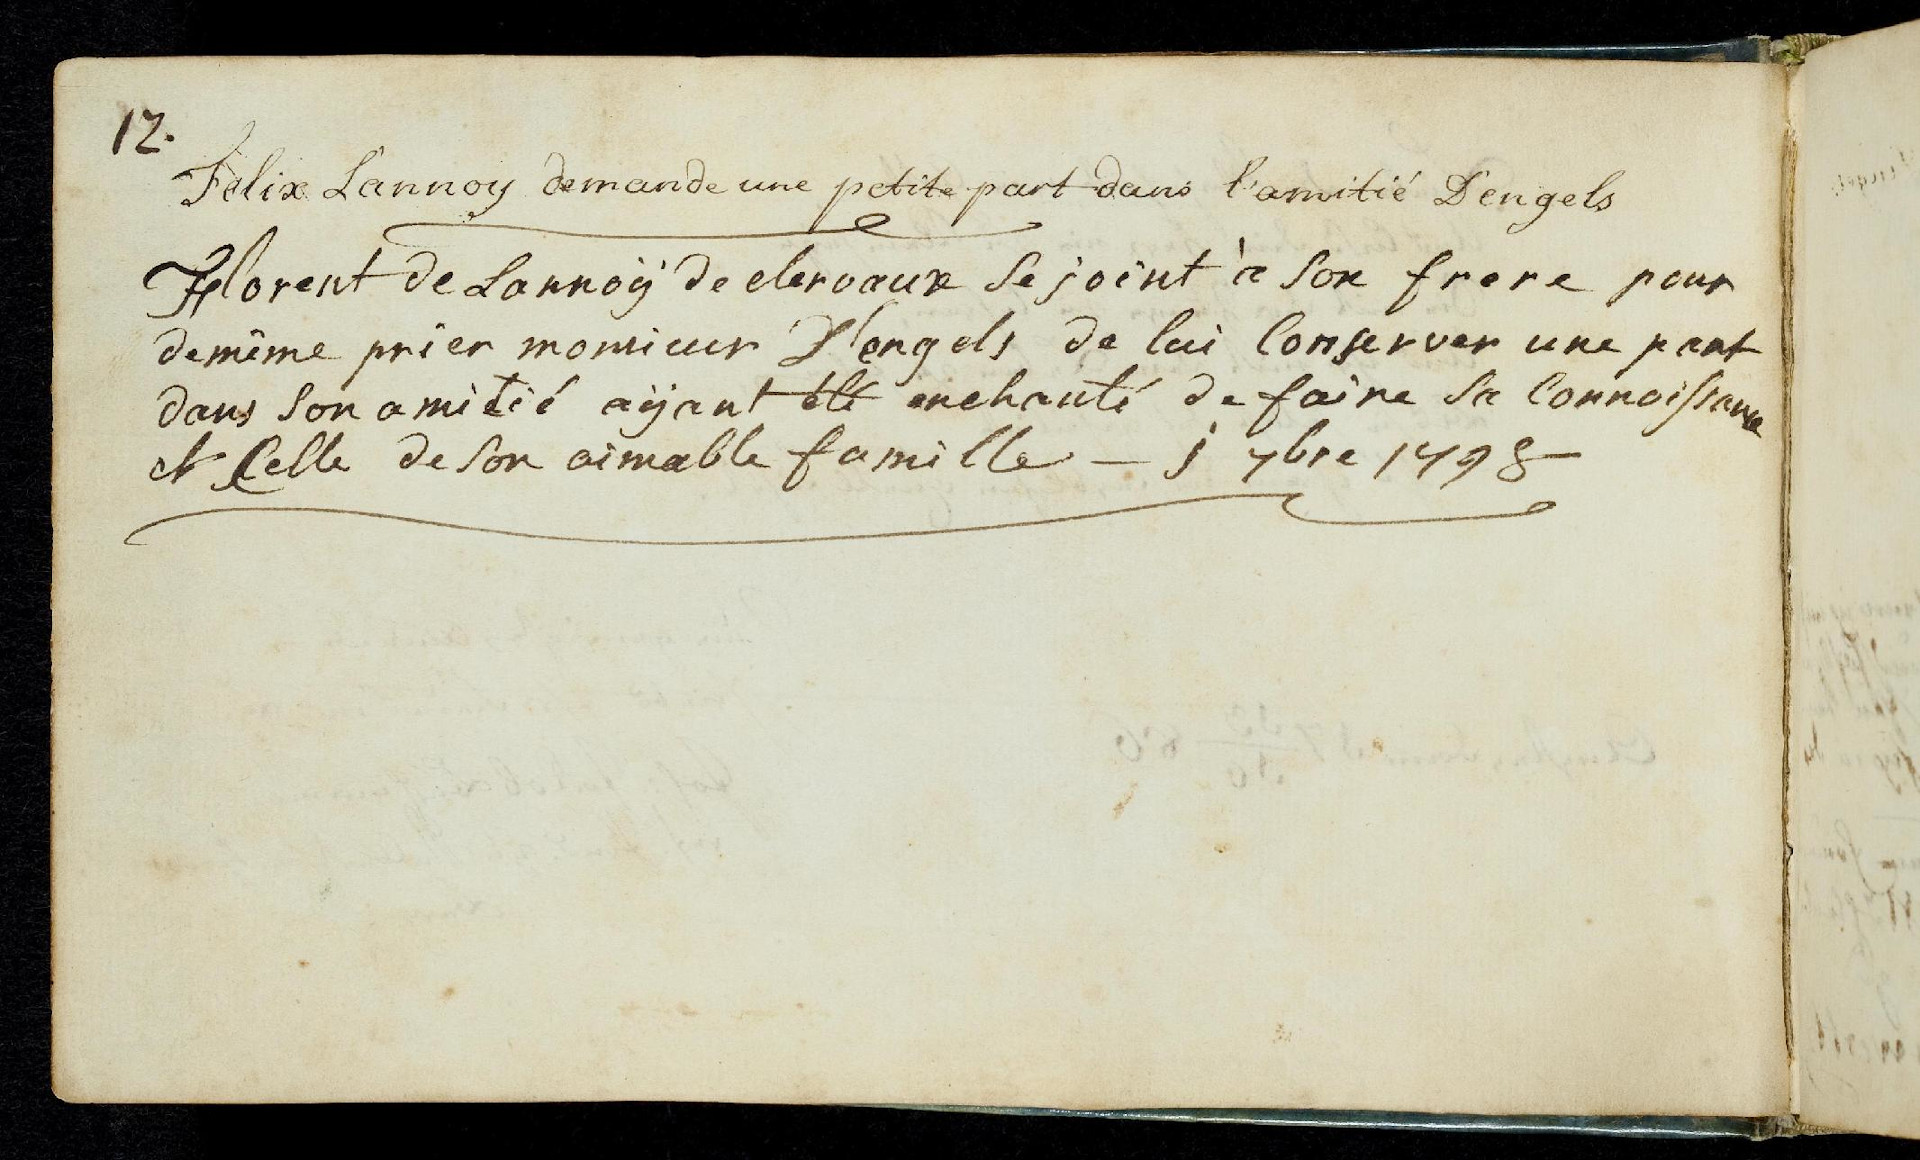 12.
Félix Lannoy demande une petite part dans l'amitié D'engels
Florent de Lannoÿ de clervaux se joint à son frere pour
demême prier monsieur D'engels de lui Conserver une part
dans son amitié aÿant été enchanté de faire sa Connoissance
et Celle de son aimable famille – j 7bre 1798